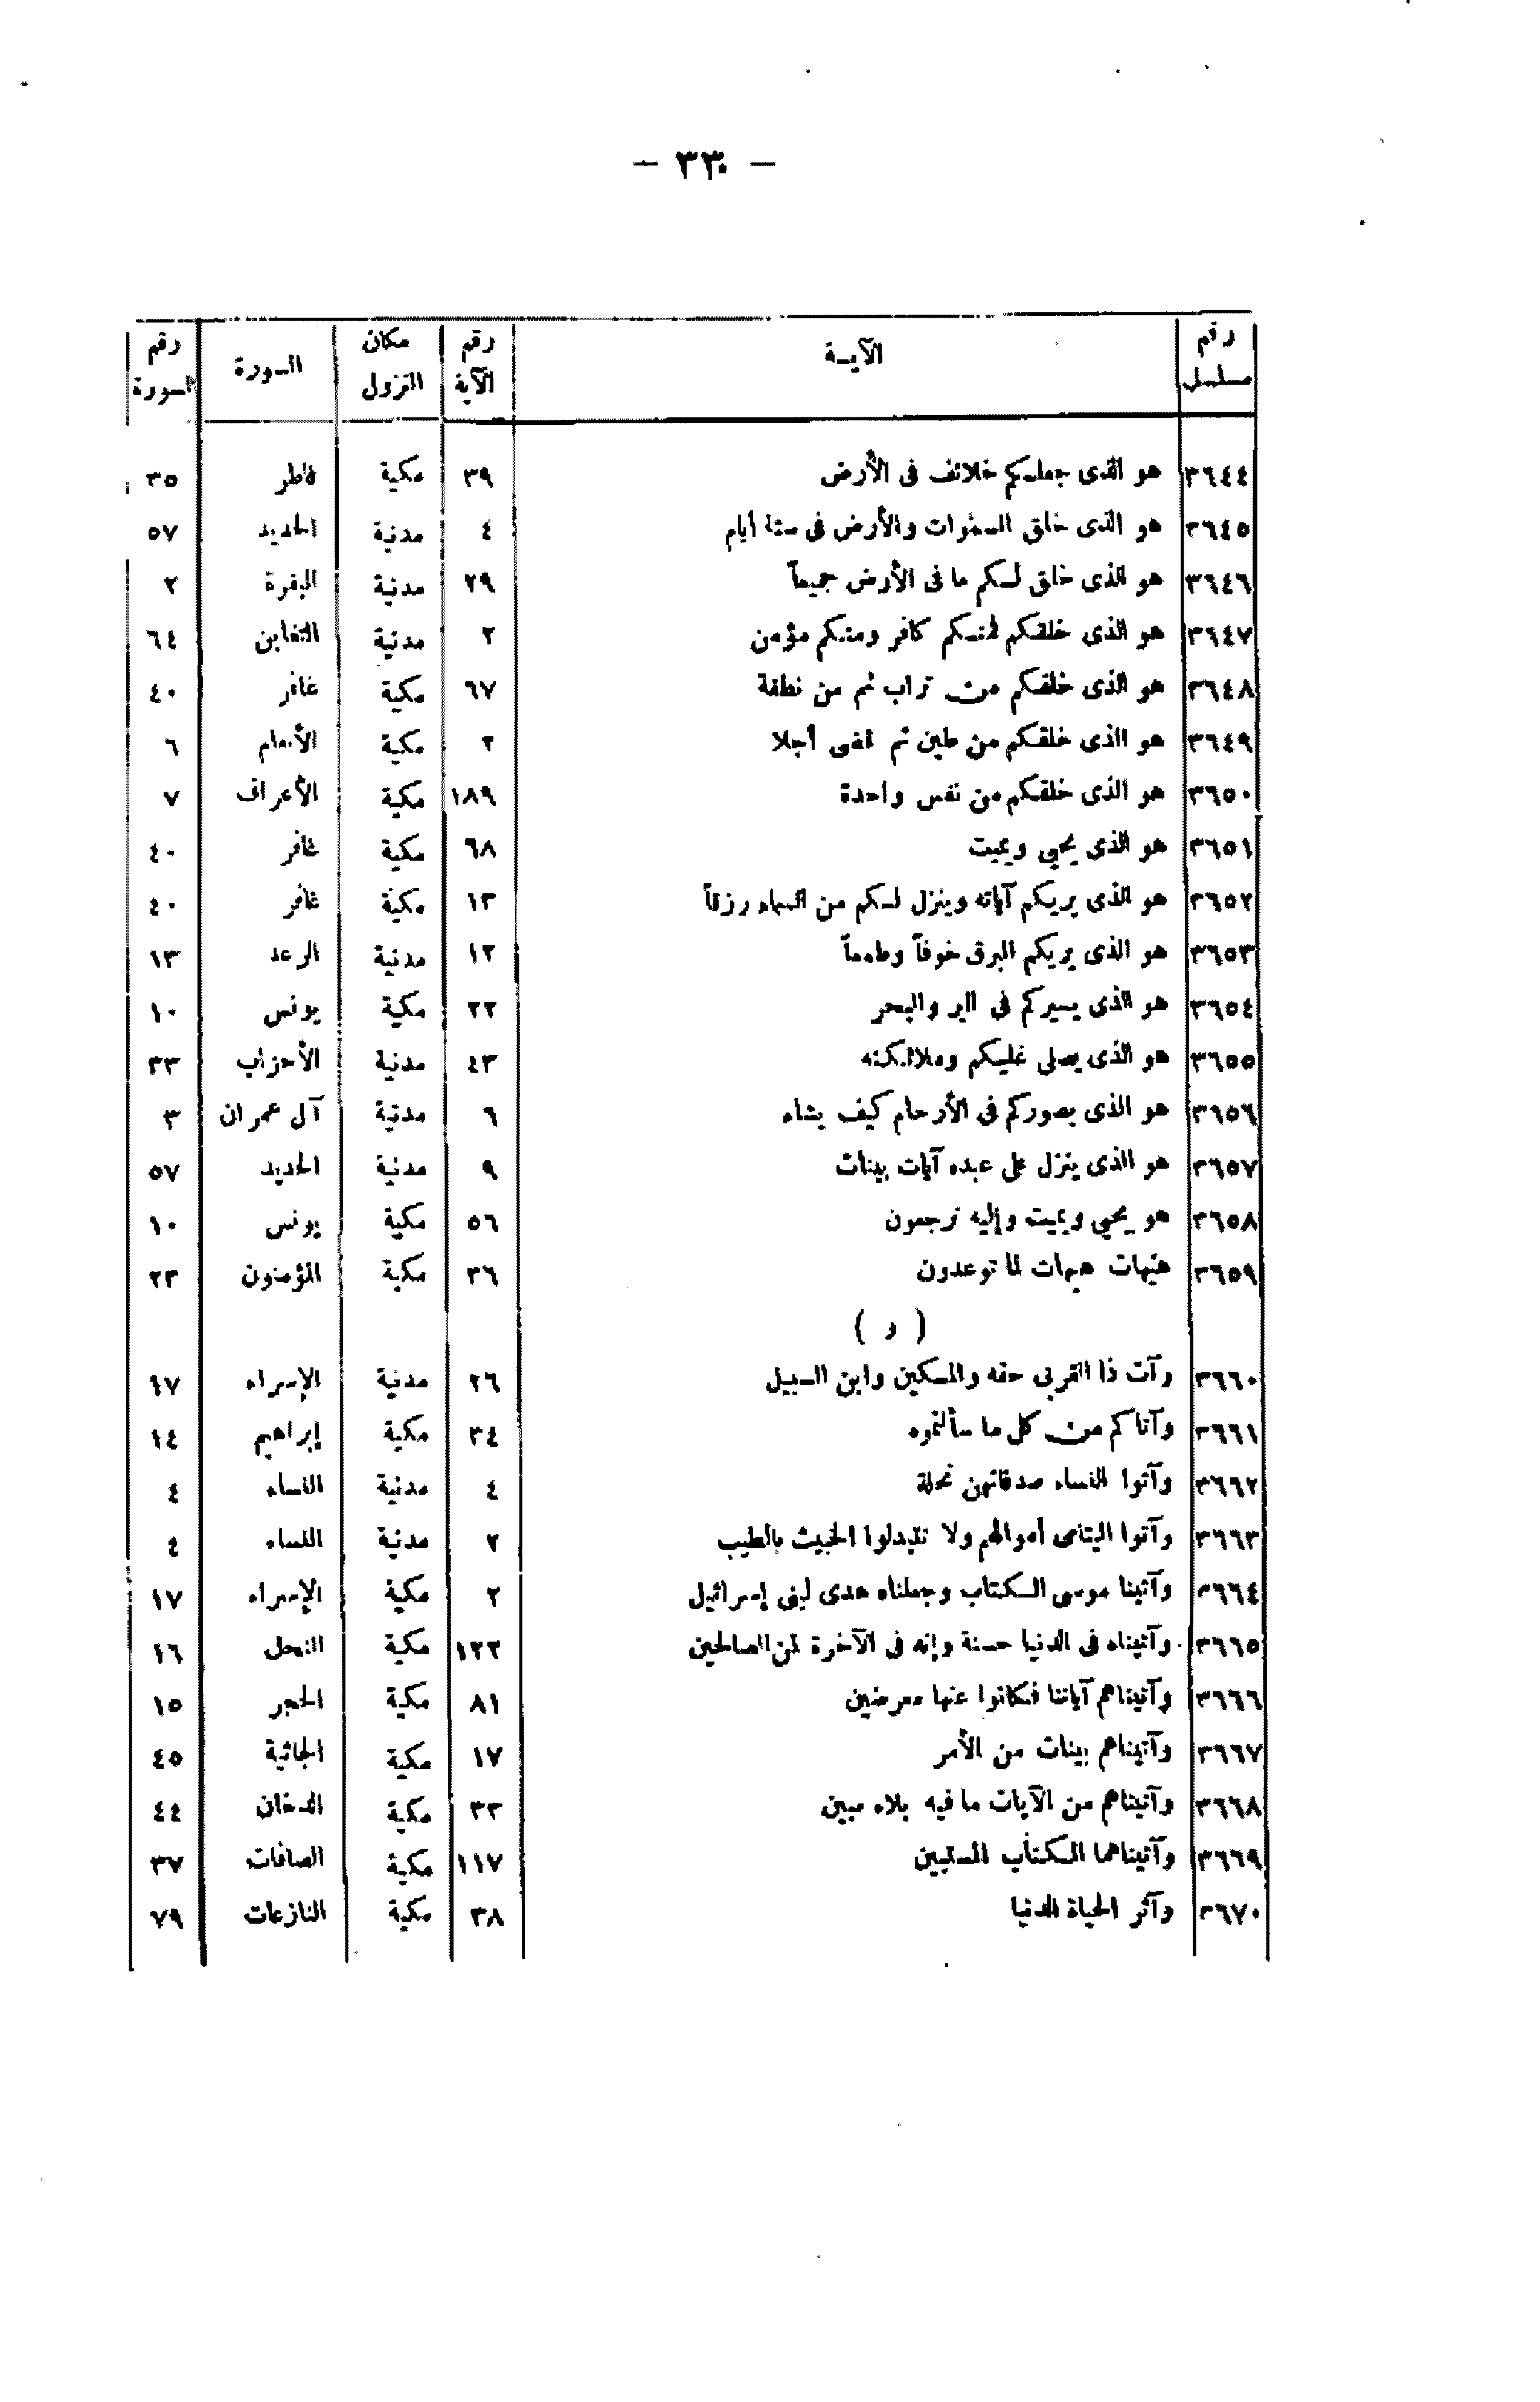 — ٣٣٠ —
رقم مسلسل | الآيـة | رقم الآية | مكان النزول | السورة | رقم السورة
٣٦٤٤ | هو الذى جعلكم خلائف فى الأرض | ٣٩ | مكية | فاطر | ٣٥
٣٦٤٥ | هو الذى خلق السموات والأرض فى ستة أيام | ٤ | مدنية | الحديد | ٥٧
٣٦٤٦ | هو الذى خلق لكم ما فى الأرض جميعاً | ٢٩ | مدنية | البقرة | ٢
٣٦٤٧ | هو الذى خلقكم فمنكم كافر ومنكم مؤمن | ٢ | مدنية | التغابن | ٦٤
٣٦٤٨ | هو الذى خلقكم من تراب ثم من نطفة | ٦٧ | مكية | غافر | ٤٠
٣٦٤٩ | هو الذى خلقكم من طين ثم قضى أجلا | ٢ | مكية | الأنعام | ٦
٣٦٥٠ | هو الذى خلقكم من نفس واحدة | ١٨٩ | مكية | الأعراف | ٧
٣٦٥١ | هو الذى يحيى ويميت | ٦٨ | مكية | غافر | ٤٠
٣٦٥٢ | هو الذى يريكم آياته وينزل لكم من السماء رزقاً | ١٣ | مكية | غافر | ٤٠
٣٦٥٣ | هو الذى يريكم البرق خوفاً وطمعاً | ١٢ | مدنية | الرعد | ١٣
٣٦٥٤ | هو الذى يسيركم فى البر والبحر | ٢٢ | مكية | يونس | ١٠
٣٦٥٥ | هو الذى يصلى عليكم وملائكته | ٤٣ | مدنية | الأحزاب | ٣٣
٣٦٥٦ | هو الذى يصوركم فى الأرحام كيف يشاء | ٦ | مدنية | آل عمران | ٣
٣٦٥٧ | هو الذى ينزل على عبده آيات بينات | ٩ | مدنية | الحديد | ٥٧
٣٦٥٨ | هو يحيى ويميت وإليه ترجعون | ٥٦ | مكية | يونس | ١٠
٣٦٥٩ | هيهات هيهات لما توعدون | ٣٦ | مكية | المؤمنون | ٢٣
( و )
٣٦٦٠ | وآت ذا القربى حقه والمسكين وابن السبيل | ٢٦ | مدنية | الإسراء | ١٧
٣٦٦١ | وآتاكم من كل ما سألتموه | ٣٤ | مكية | إبراهيم | ١٤
٣٦٦٢ | وآتوا النساء صدقاتهن نحلة | ٤ | مدنية | النساء | ٤
٣٦٦٣ | وآتوا اليتامى أموالهم ولا تتبدلوا الخبيث بالطيب | ٢ | مدنية | النساء | ٤
٣٦٦٤ | وآتينا موسى الكتاب وجعلناه هدى لبنى إسرائيل | ٢ | مكية | الإسراء | ١٧
٣٦٦٥ | وآتيناه فى الدنيا حسنة وإنه فى الآخرة لمن الصالحين | ١٢٢ | مكية | النحل | ١٦
٣٦٦٦ | وآتيناهم آياتنا فكانوا عنها معرضين | ٨١ | مكية | الحجر | ١٥
٣٦٦٧ | وآتيناهم بينات من الأمر | ١٧ | مكية | الجاثية | ٤٥
٣٦٦٨ | وآتيناهم من الآيات ما فيه بلاء مبين | ٣٣ | مكية | الدخان | ٤٤
٣٦٦٩ | وآتيناهما الكتاب المستبين | ١١٧ | مكية | الصافات | ٣٧
٣٦٧٠ | وآثر الحياة الدنيا | ٣٨ | مكية | النازعات | ٧٩